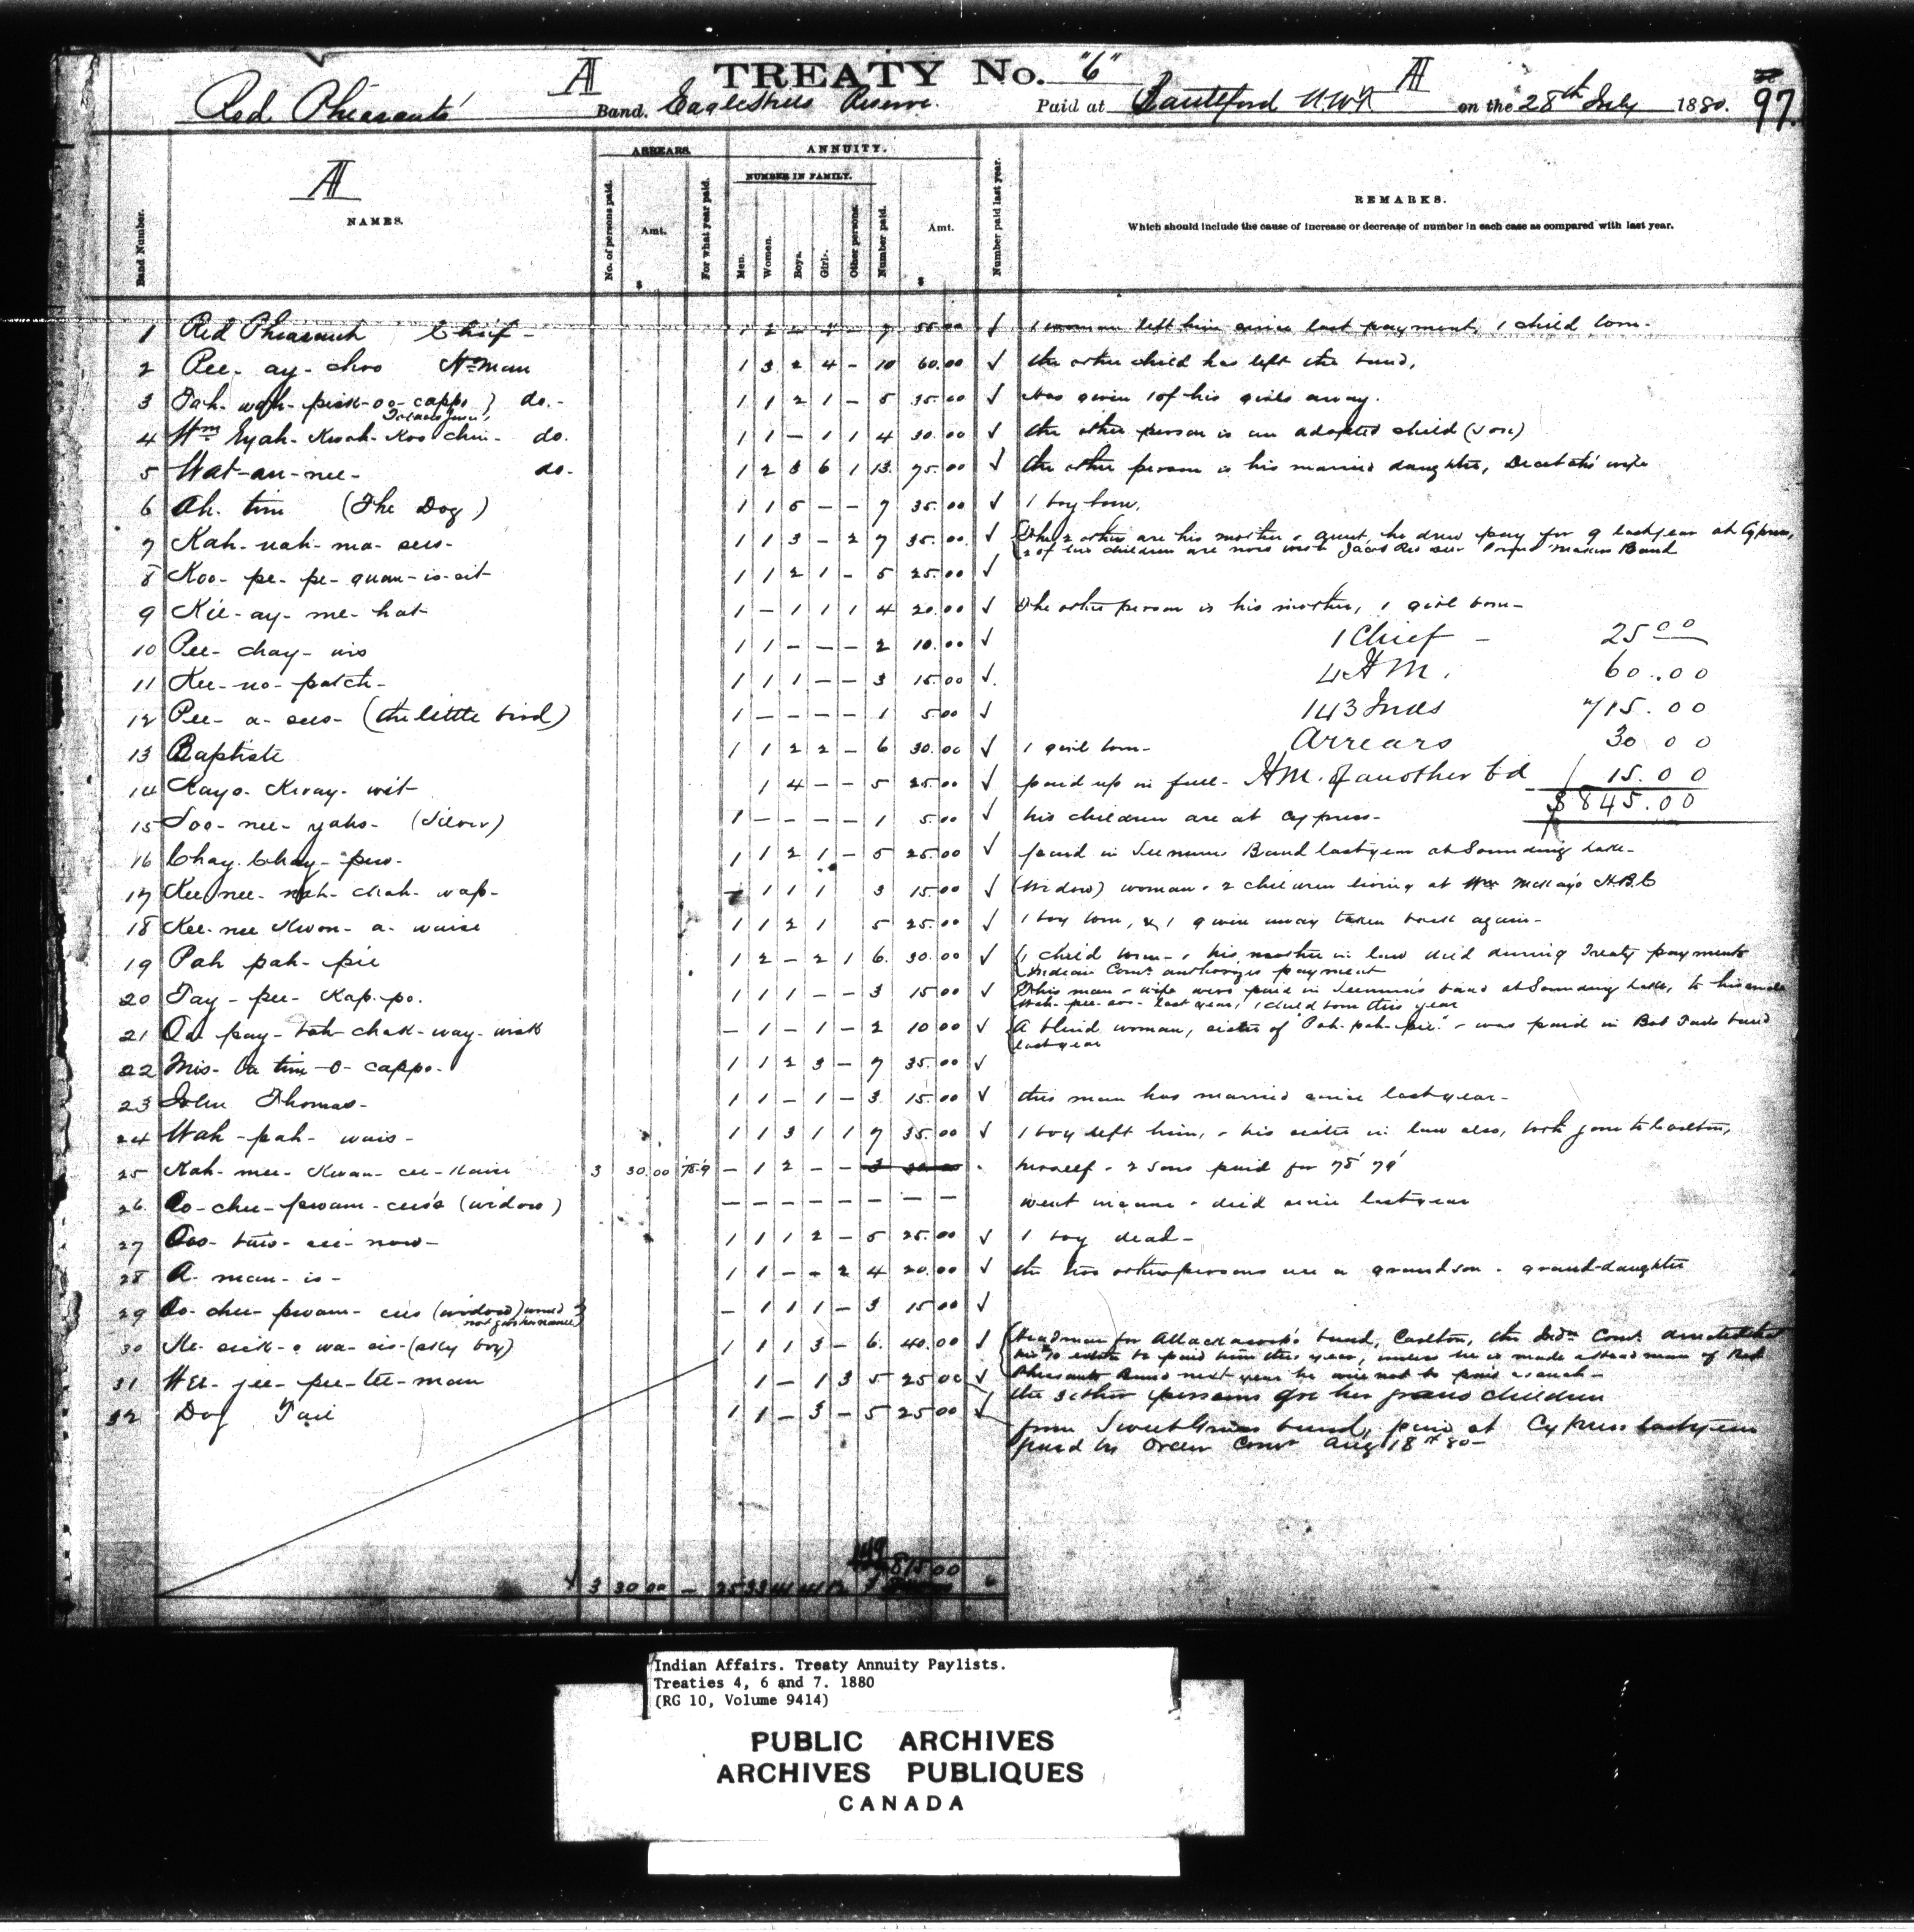 TREATY No. "6"
A A
97.
Red Pheasants Band. Eagle Hills Reserve. Paid at Battleford N.W.T. on the 28th July 1880.
A
Band Number.
NAMES.
ARREARS.
No. of persons paid.
Amt.
$
For what year paid.
ANNUITY.
NUMBER IN FAMILY.
Men.
Women.
Boys.
Girls.
Other persons.
Number paid.
Amt.
$
Number paid last year.
REMARKS.
Which should include the cause of increase or decrease of number in each case as compared with last year.
1 Red Pheasant Chief - 1 2 - 4 - 7 55.00 √ 1 woman left him since last payment, 1 child born -
2 Pee- ay- choo Hdman 1 3 2 4 - 10 60.00 √ the other child has left the band,
3 Tah- wah- pisk-oo- cappo } do. - 1 1 2 1 - 5 35.00 √ Has given 1 of his girls away.
4 Wm Eyah- Kwah- Koo chin- do. 1 1 - 1 1 4 30.00 √ the other person is an adopted child (son)
5 Wat-an-nee- do- 1 2 3 6 1 13 75.00 √ the other person is his married daughter, wife
6 Ah. tim (The Dog) 1 1 5 - - 7 35.00 √ 1 boy born,
7 Kah- nah- ma- sees- 1 1 3 - 2 7 35.00 √ The 2 others are his mother & aunt, he drew pay for 9 last year at Cypress,
2 of his children are now with Band
8 Koo- pe- pe- quan- is- sit 1 1 2 1 - 5 25.00 √
9 Kee- ay- me- hat- 1 - 1 1 1 4 20.00 √ The other person is his mother, 1 girl born -
10 Pee- chay- wis 1 1 - - - 2 10.00 √
1 Chief - 25.00
11 Kee- no- patch- 1 1 1 - - 3 15.00 √.
4 H M. 60.00
12 Pee- a- sees- (the little bird) 1 - - - - 1 5.00 √
143 Inds 715.00
13 Baptiste 1 1 2 2 - 6 30.00 √ 1 girl born -
Arrears 30 00
14 Kayo- Kway- wit- 1 4 - - 5 25.00 √ paid up in full - HM. of another bd 15.00
$845.00
15 Soo- nee- yahs- (Silver) 1 - - - - 1 5.00 √ his children are at Cypress -
16 Chay. Chay- pew- 1 1 2 1 - 5 25.00 √ paid in Band last year at Sounding Lake -
17 Kee nee- nah- chah- wap- 1 1 1 3 15.00 √ (Widow) woman & 2 children living at Wm McKay's H.B.C
18 Kee- nee Kwon- a- waise 1 1 2 1 5 25.00 √ 1 boy born, & 1 given away taken back again -
19 Pah pah- pie 1 2 - 2 1 6. 30.00 √ 1 child born - & his mother in law died during Treaty payments
Indian Comr authorizes payment
20 Tay - pee- Kap- po. 1 1 1 - - 3 15 00 √ This man & wife were paid in band at Sounding Lake, to his uncle
last year, 1 child born this year
21 Oo pay- tah chak- way- wisk - 1 - 1 - 2 10 00 √ A blind woman, sister of "Pah- pah- pie" - was paid in Bob Tails band
last year
22 Mis- Oa tim -O- cappo- 1 1 2 3 - 7 35.00 √
23 John Thomas - 1 1 - 1 - 3 15.00 √ this man has married since last year -
24 Wah - pah- wais - 1 1 3 1 1 7 35.00 √ 1 boy left him, & his sister in law also, both gone to Carlton,
25 Kah- mee- Kwan- cee- 3 30.00 78-9 - 1 2 - - 3 herself & 2 sons paid for 78' 79'
26. Oo- chee- pwam- ceis's (widow) - - - - - - - went insane & died since last year
27 Oos- taw- ee- now- 1 1 1 2 - 5 25.00 √ 1 boy dead -
28 A- man- is- 1 1 - - 2 4 20.00 √ the two other persons are a grandson & grand-daughter
29 Oo- chee- pwam- ceis (widow) would not give her name - 1 1 1 - 3 15 00 √
30 Me- sick- a wa- sis- (sky boy) 1 1 1 3 - 6. 40.00 √ Headman for band, Carlton, the Indn Comr directed that
his extra be paid him this year, unless he is made a Headman of Red
Pheasants Band next year he will not be paid as such -
31 Wee- jee- pee- tee- man 1 - 1 3 5 25 00 √ the 3 other persons are her grand children
32 Dog Tail 1 1 - 3 - 5 25 00 √ from Sweet Grass band, paid at Cypress last year
paid by order Comr Aug 18th 80 -
149
815 00
√ 3 30 00 - 25 33
Indian Affairs. Treaty Annuity Paylists.
Treaties 4, 6 and 7. 1880
(RG 10, Volume 9414)
PUBLIC ARCHIVES
ARCHIVES PUBLIQUES
CANADA